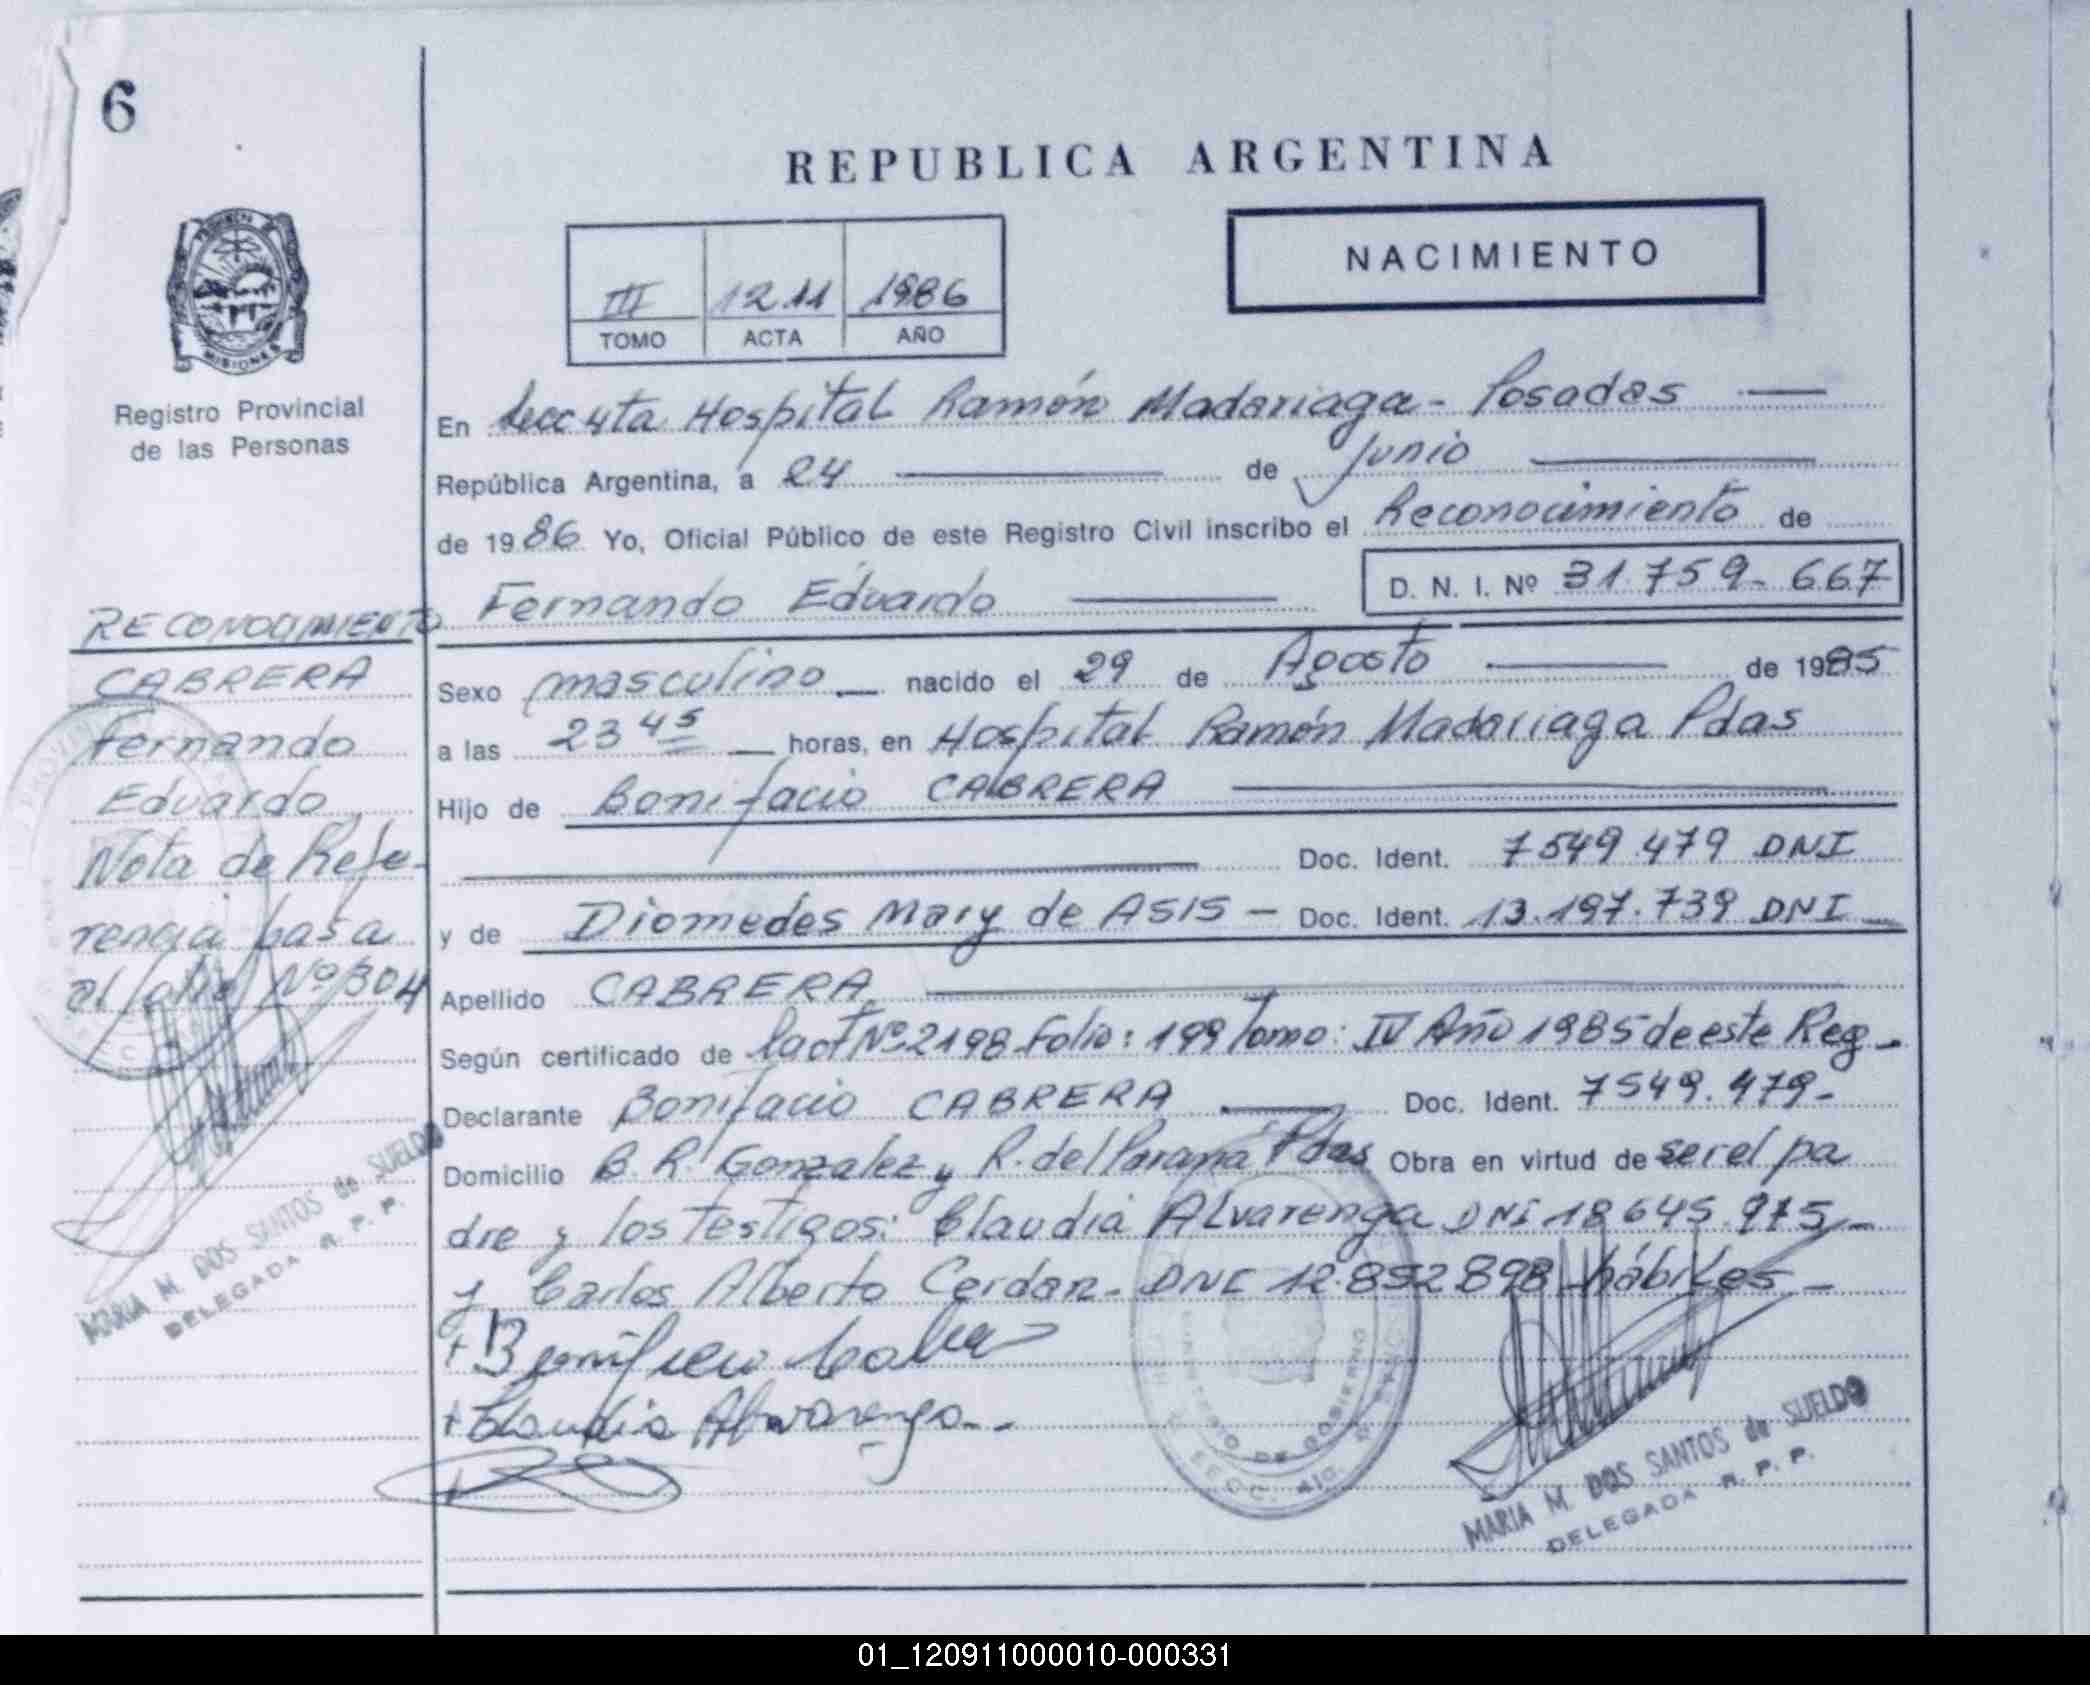 6
REPUBLICA ARGENTINA
NACIMIENTO
III 1211 1986
TOMO ACTA AÑO
PROVINCIA DE MISIONES
Registro Provincial
de las Personas
En Secc 4ta Hospital Ramón Madariaga - Posadas
República Argentina, a 24 de Junio
de 1986 Yo, Oficial Público de este Registro Civil inscribo el Reconocimiento de
Fernando Eduardo D. N. I. Nº 31.759.667
Sexo masculino nacido el 29 de Agosto de 1985
a las 23 45 horas, en Hospital Ramón Madariaga Pdas
Hijo de Bonifacio CABRERA
Doc. Ident. 7549.479 DNI
y de Diomedes Mary de ASIS - Doc. Ident. 13.197.739 DNI
Apellido CABRERA
Según certificado de Nº 2198 Folio: 199 Tomo: IV Año 1985 de este Reg.
Declarante Bonifacio CABRERA Doc. Ident. 7549.479-
Domicilio B. R. Gonzalez y R. del Paraná Pdas Obra en virtud de ser el pa
dre y los testigos: Claudia Alvarenga DNI 18645.975-
y Carlos Alberto Cerdan - DNI 12.852898 hábiles-
Claudia Alvarenga
MINISTERIO DE GOBIERNO
MARIA M. DOS SANTOS de SUELDO
DELEGADA R. P. P.
RECONOCIMIENTO
CABRERA
Fernando
Eduardo
Nota de Refe-
rencia pasa
al folio Nº 304
MARIA M. DOS SANTOS de SUELDO
DELEGADA R. P. P.
01_120911000010-000331